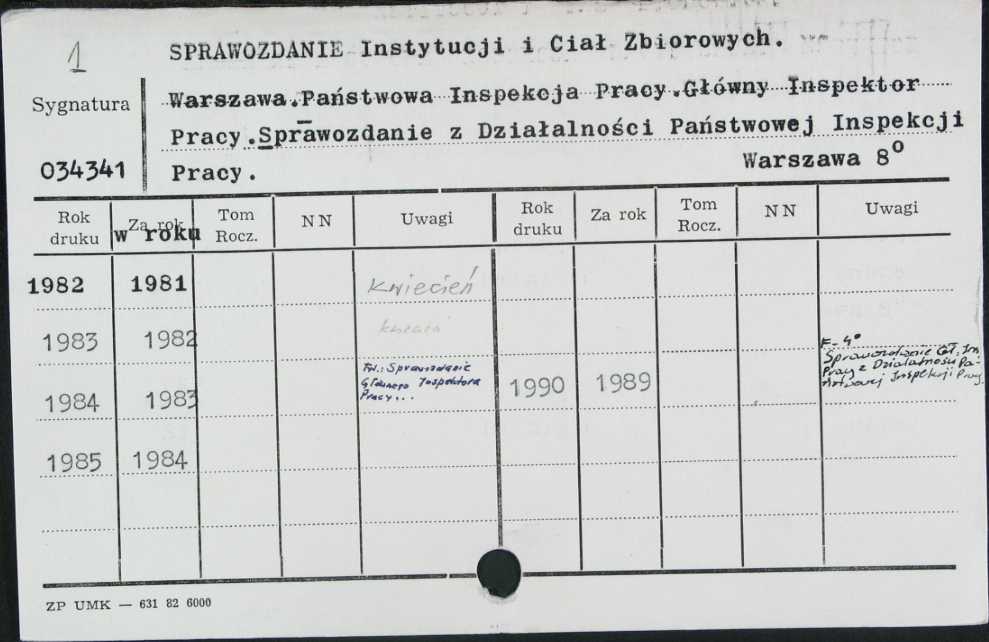 1
SPRAWOZDANIE Instytucji i Ciał Zbiorowych.
Sygnatura
Warszawa.Państwowa Inspekcja Pracy.Główny Inspektor
Pracy.Sprawozdanie z Działalności Państwowej Inspekcji
034341 Pracy. Warszawa 8°
Rok druku Za rok w roku Tom Rocz. NN Uwagi Rok druku Za rok Tom Rocz. NN Uwagi
1982 1981 Kwiecień
1983 1982
1984 1983 Tyt.: Sprawozdanie
Głównego Inspektora
Pracy...
1990 1989 F. 4°
Sprawozdanie Gł. Insp.
Pracy z Działalności Pań-
stwowej Inspekcji Pracy
1985 1984
ZP UMK — 631 82 6000